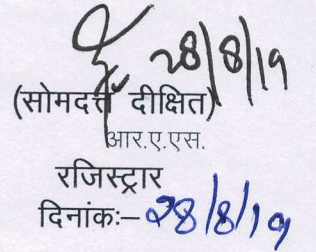 28/8/19
(सोमदत्त दीक्षित)
आर.ए.एस.
रजिस्ट्रार
दिनांकः–28/8/19